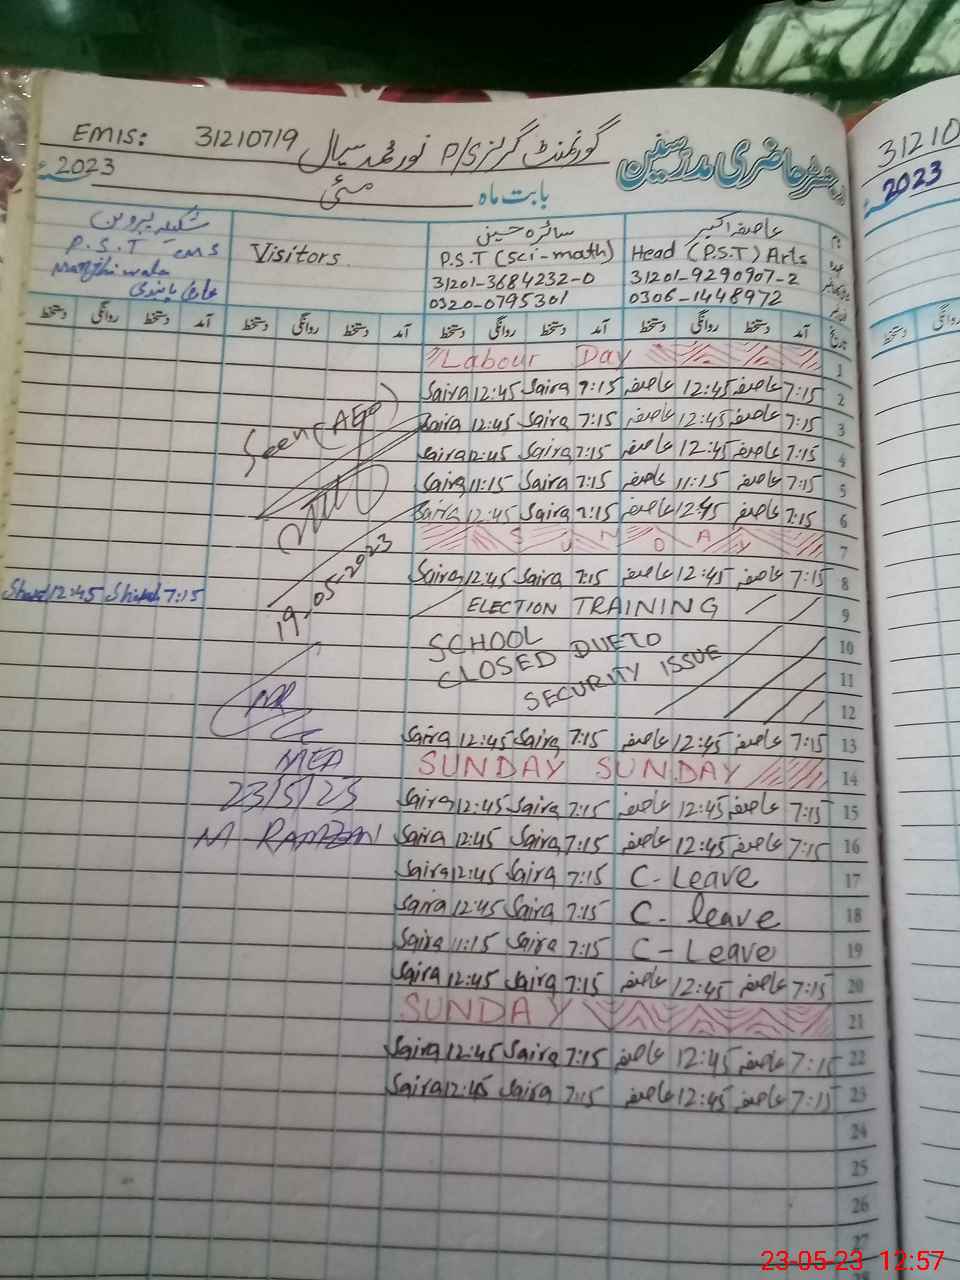 EMIS: 31210719 گورنمنٹ گرلز P/S نور محمد سیال
رجسٹر حاضری مدرسین
2023ء مئی بابت ماہ
31210
2023
عاصفہ اکبر
Head (P.S.T) Arts
31201-9290907-2
0306-1448972
سائرہ حسین
P.S.T (Sci-math)
31201-3684232-0
0320-0795301
Visitors
شکیلہ پروین
P.S.T ems
عارضی پابندی
تاریخ آمد دستخط روانگی دستخط آمد دستخط روانگی دستخط آمد دستخط روانگی دستخط آمد دستخط روانگی دستخط
روانگی دستخط
1 Labour Day
2 7:15 عاصفہ 12:45 عاصفہ 7:15 Saira 12:45 Saira
3 7:15 عاصفہ 12:45 عاصفہ 7:15 Saira 12:45 Saira
4 7:15 عاصفہ 12:45 عاصفہ 7:15 Saira 12:45 Saira
5 7:15 عاصفہ 11:15 عاصفہ 7:15 Saira 11:15 Saira
6 7:15 عاصفہ 12:45 عاصفہ 7:15 Saira 12:45 Saira
7 SUNDAY
8 7:15 عاصفہ 12:45 عاصفہ 7:15 Saira 12:45 Saira
7:15 12:45
9 ELECTION TRAINING
10 SCHOOL
11 CLOSED DUE TO
12 SECURITY ISSUE
13 7:15 عاصفہ 12:45 عاصفہ 7:15 Saira 12:45 Saira
14 SUNDAY SUNDAY
15 7:15 عاصفہ 12:45 عاصفہ 7:15 Saira 12:45 Saira
16 7:15 عاصفہ 12:45 عاصفہ 7:15 Saira 12:45 Saira
17 C-Leave 7:15 Saira 12:45 Saira
18 C-leave 7:15 Saira 12:45 Saira
19 C-Leave 7:15 Saira 11:15 Saira
20 7:15 عاصفہ 12:45 عاصفہ 7:15 Saira 12:45 Saira
21 SUNDAY
22 7:15 عاصفہ 12:45 عاصفہ 7:15 Saira 12:45 Saira
23 7:15 عاصفہ 12:45 عاصفہ 7:15 Saira 12:45 Saira
24
25
26
27
Seen (AEO)
19-05-2023
MEA
23/5/23
M RAMZAN
23-05-23 12:57